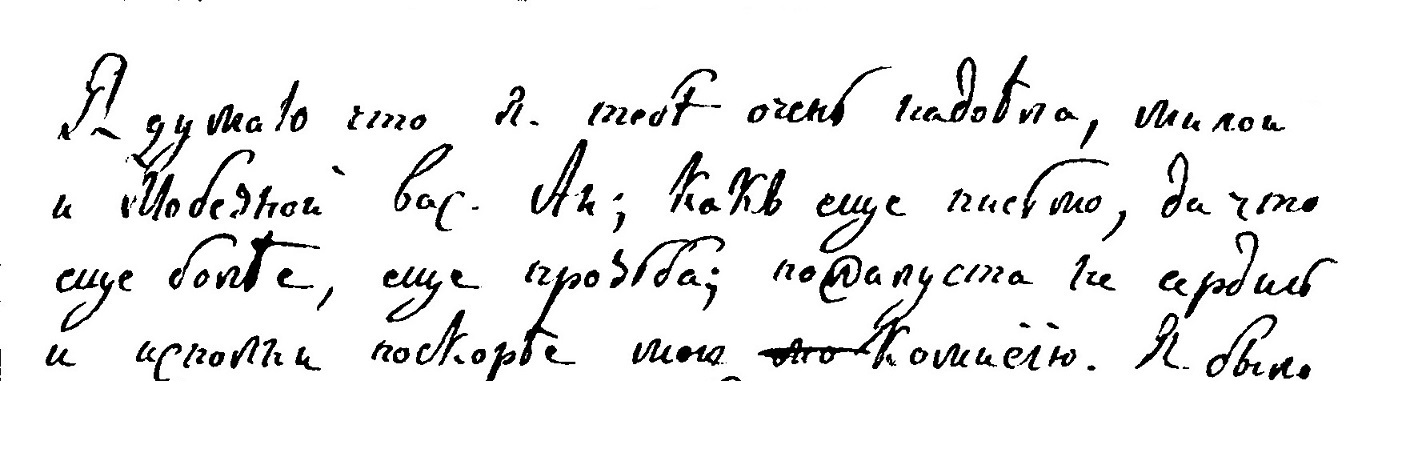 Я думаю что я. тебѣ очень надоѣла, милой
и любезной вас. Ан; какъ еще письмо, да что
еще болѣе, еще прозьба; пожалуста не сердись
и исполни поскорѣе мою комисїю. Я было